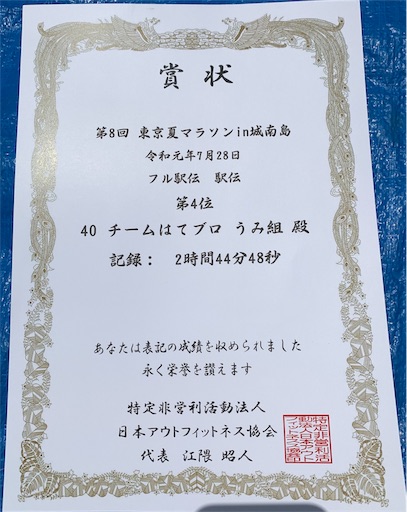 賞状
第8回 東京夏マラソンin城南島
令和元年7月28日
フル駅伝 駅伝
第4位
40 チームはてブロ うみ組 殿
記録： 2時間44分48秒
あなたは表記の成績を収められました
永く栄誉を讃えます
特定非営利活動法人
日本アウトフィットネス協会
代表 江隈 昭人